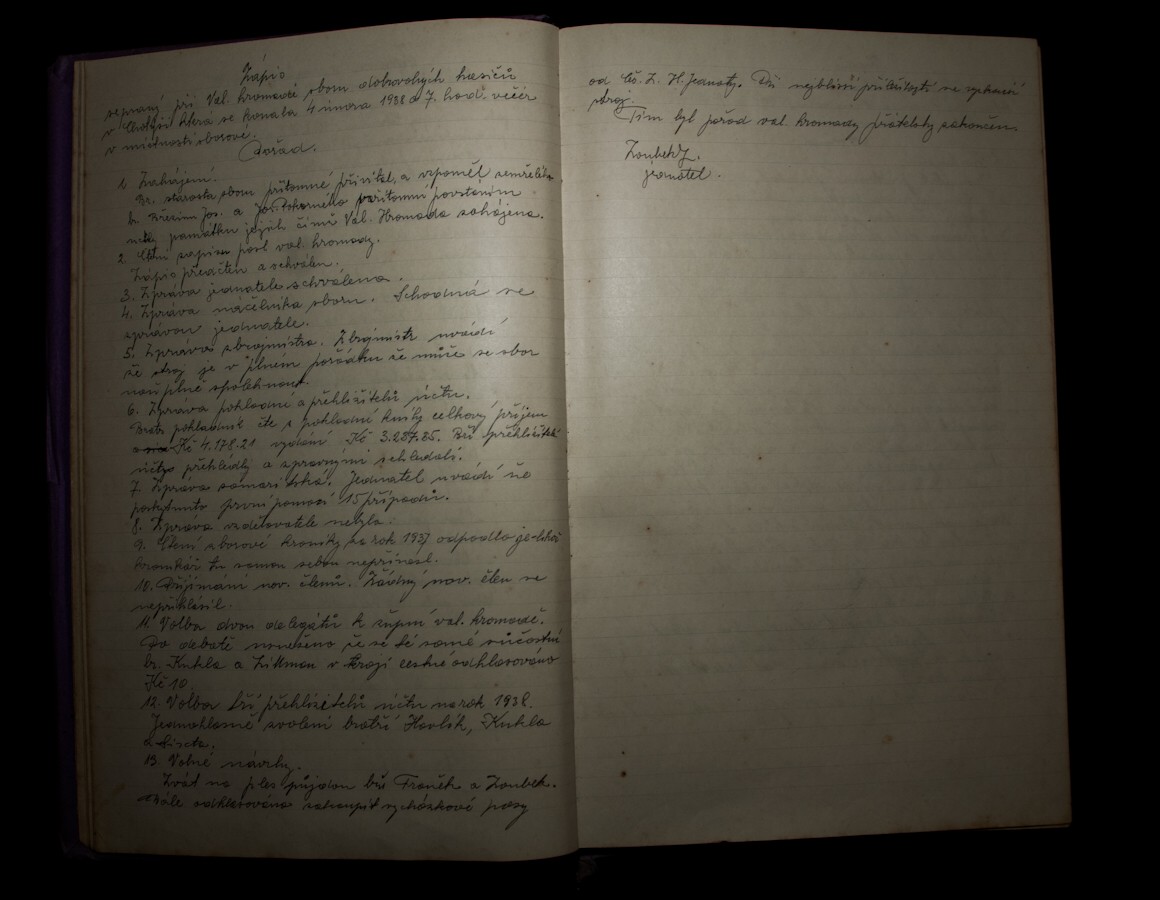 Zápis
sepsaný při Val. hromadě sboru dobrovolných hasičů
v která se konala 4 února 1938 o 7. hod. večer
v místnosti sborové.
Pořad.
1. Zahájení.
Br. starosta sboru přítomné přivítal, a vzpoměl zemřelého
br. Březinu Jos. a Jos. Pokorného přítomní povstáním
uctily památku jejich čímž Val. Hromada zahájena.
2. Čtení zápisu posl val. hromady.
Zápis přečten a schválen.
3. Zpráva jednatele schválena.
4. Zpráva náčelníka sboru. Schodná se
zprávou jednatele.
5. Zpráva zbrojmistra. Zbrojmistr uvádí
že stroj je v plném pořádku že může se sbor
naň plně spolehnout.
6. Zpráva pokladní a přehlížitelů účtu.
Bratr pokladník čte z pokladní knihy celkový příjem
Kč 4.178.21 vydání Kč 3.287.85. Bří přehlížitelé
účty přehlédly a správnými schledali.
7. Zpráva samaritská. Jednatel uvádí že
poskytnuto první pomoci 15 případů.
8. Zpráva vzdělavatele nebyla.
9. Čtení sborové kroniky za rok 1937 odpadlo
kronikář tu samou sebou nepřinesl.
10. Přijímání nov. členů. Žádný nov. člen se
nepřihlásil.
11. Volba dvou delegátů k župní val. hromadě.
Po debatě usnešeno že se té samé súčastní
br. Kukla a Zikman v kroji cestné odhlasováno
Kč 10.
12. Volba tří přehlížitelů účtu na rok 1938.
Jednohlasně zvoleni bratří Havlík, Kukla
a
13. Volné návrhy.
Zvát na ples půjdou bři Franěk a Zoubek.
Dále odhlasováno zakoupit vycházkové pasy
od Čs. Z. H. Jednoty. Při nejbližší příležitosti se vyzkouší
stroj.
Tím byl pořad val. hromady přátelsky zakončen.
Zoubek J.
jednatel.